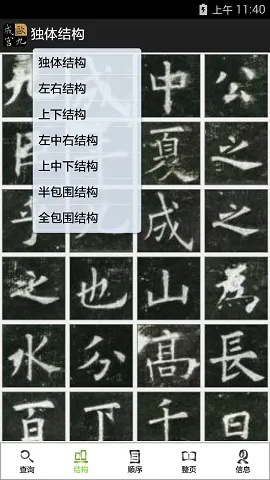 上午 11:40
成宫 欧九
独体结构
独体结构
左右结构
上下结构
左中右结构
上中下结构
半包围结构
全包围结构
九 成 中 公
夏 之
乎 成 之
之 也 山 為
水 分 高 長
百 下 千 日
查询 结构 顺序 整页 信息